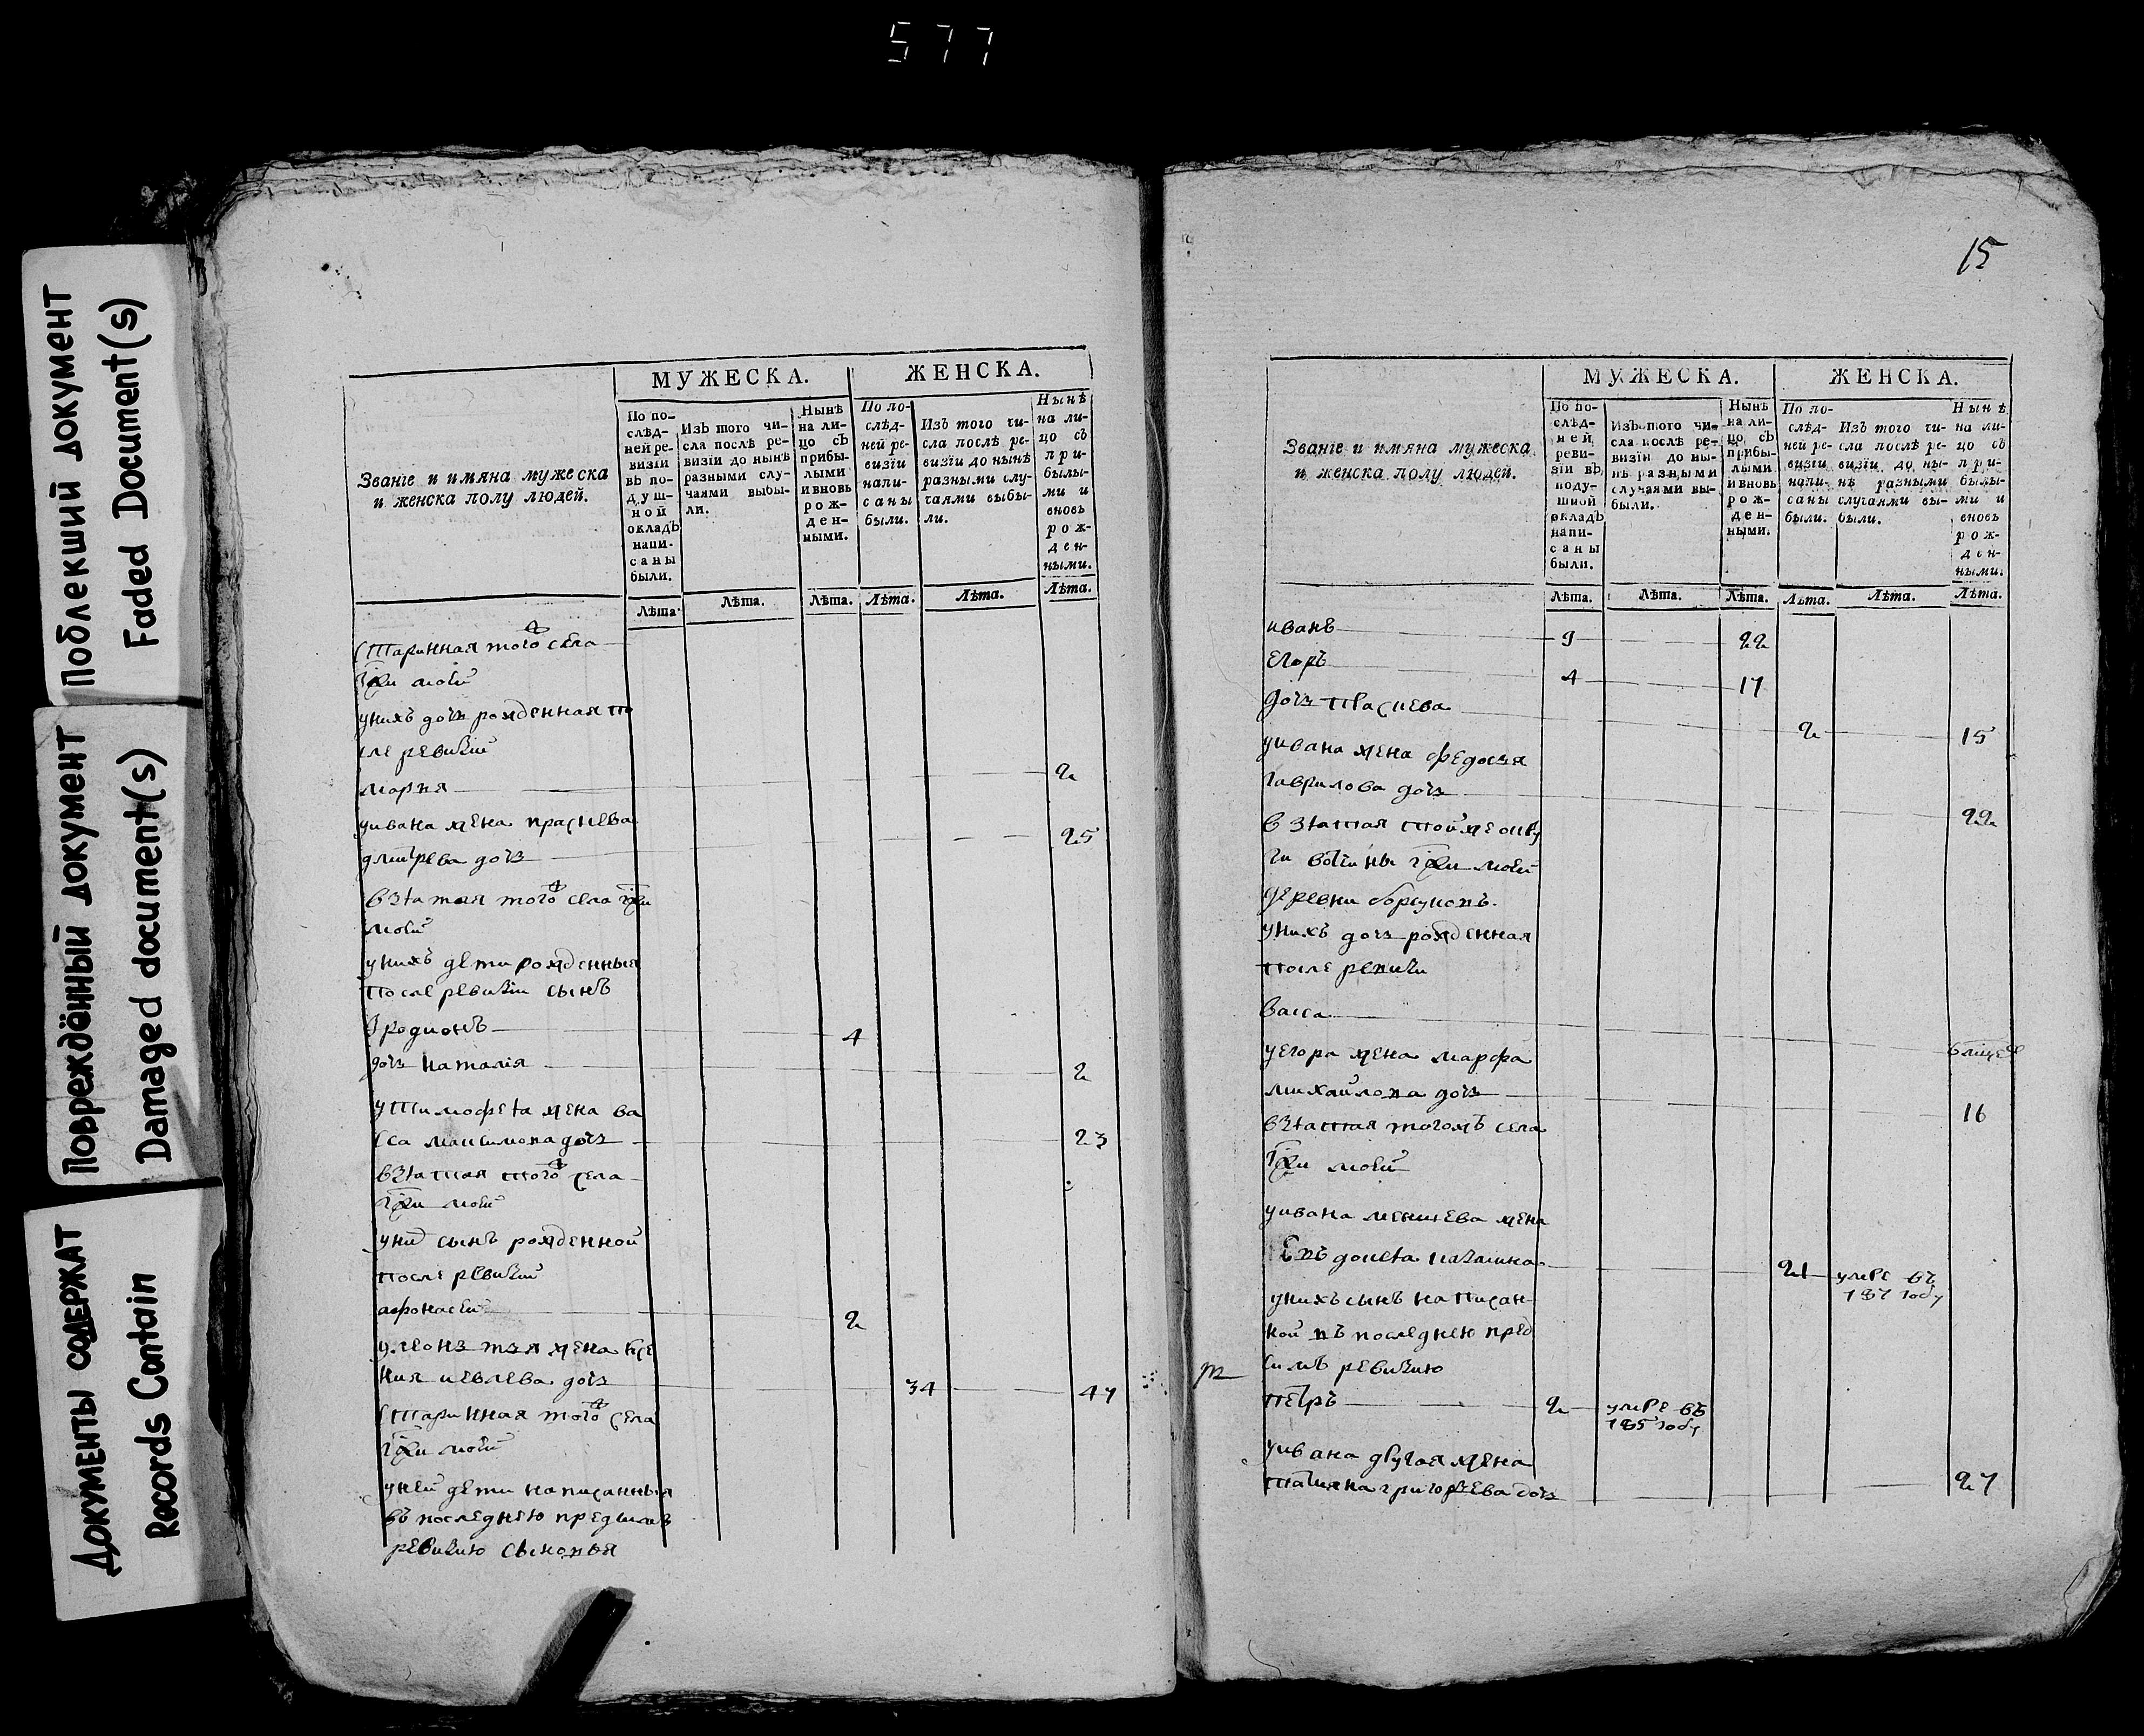 577
Поблекший документ
Faded Document(s)
Повреждённый документ
Damaged document(s)
Документы содержат
Records Contain
МУЖЕСКА.
ЖЕНСКА.
Званїе и имяна мужеска
и женска полу людей.
По по-
слѣд-
ней ре-
визїи
въ по-
душ-
ной
окладъ
напи-
саны
были.
Изъ того чи-
сла послѣ ре-
визїи до нынѣ
разными слу-
чаями выбы-
ли.
Нынѣ
на ли-
цо съ
прибы-
лыми
и вновь
рож-
ден-
ными.
По по-
слѣд-
ней ре-
визїи
напи-
саны
были.
Изъ того чи-
сла послѣ ре-
визїи до нынѣ
разными слу-
чаями выбы-
ли.
Нынѣ
на ли-
цо съ
при-
былы-
ми и
вновь
рож-
ден-
ными.
Лѣта.
Лѣта.
Лѣта.
Лѣта.
Лѣта.
Лѣта.
старинная того села
унихъ дочь рожденная по
сле ревизіи
марья 2
уивана жена
дмитрева дочь 25
взятая того села
унихъ дети рожденныя
после ревизіи сынъ
родионъ 4
дочь наталія 2
утимофея жена ва
сса максимова дочь 23
взятая того села
сынъ рожденной
после ревизіи
афонасей 2
улеонтья жена ксе
ния иевлева дочь 34 47
старинная того села
уней дети написанныя
въ последнею предъ симъ
ревизию сыновья
15
МУЖЕСКА.
ЖЕНСКА.
Званїе и имяна мужеска
и женска полу людей.
По по-
слѣд-
ней
реви-
зїи въ
поду-
шной
окладъ
напи-
саны
были.
Изъ того чи-
сла послѣ ре-
визїи до ны-
нѣ разными
случаями вы-
были.
Нынѣ
на ли-
цо съ
прибы-
лыми
и вновь
рож-
ден-
ными.
По по-
слѣд-
ней ре-
визїи
напи-
саны
были.
Изъ того чи-
сла послѣ ре-
визїи до ны-
нѣ разными
случаями вы-
были.
Нынѣ
на ли-
цо съ
при-
былы-
ми и
вновь
рож-
ден-
ными.
Лѣта.
Лѣта.
Лѣта.
Лѣта.
Лѣта.
Лѣта.
иванъ 9 22
егоръ 4 17
дочь 2 15
уивана жена федосья
гаврилова дочь 22
взятая
вотчины
деревни
унихъ дочь рожденная
после
васса
уегора жена марфа
михайлова дочь 16
взятая тогожъ села
уивана жена
21 умре въ
году
унихъ сынъ написан
ной въ последнею пред
симъ ревизию
петръ 2 умре въ
году
уивана другая жена
татияна григорьева дочь 27